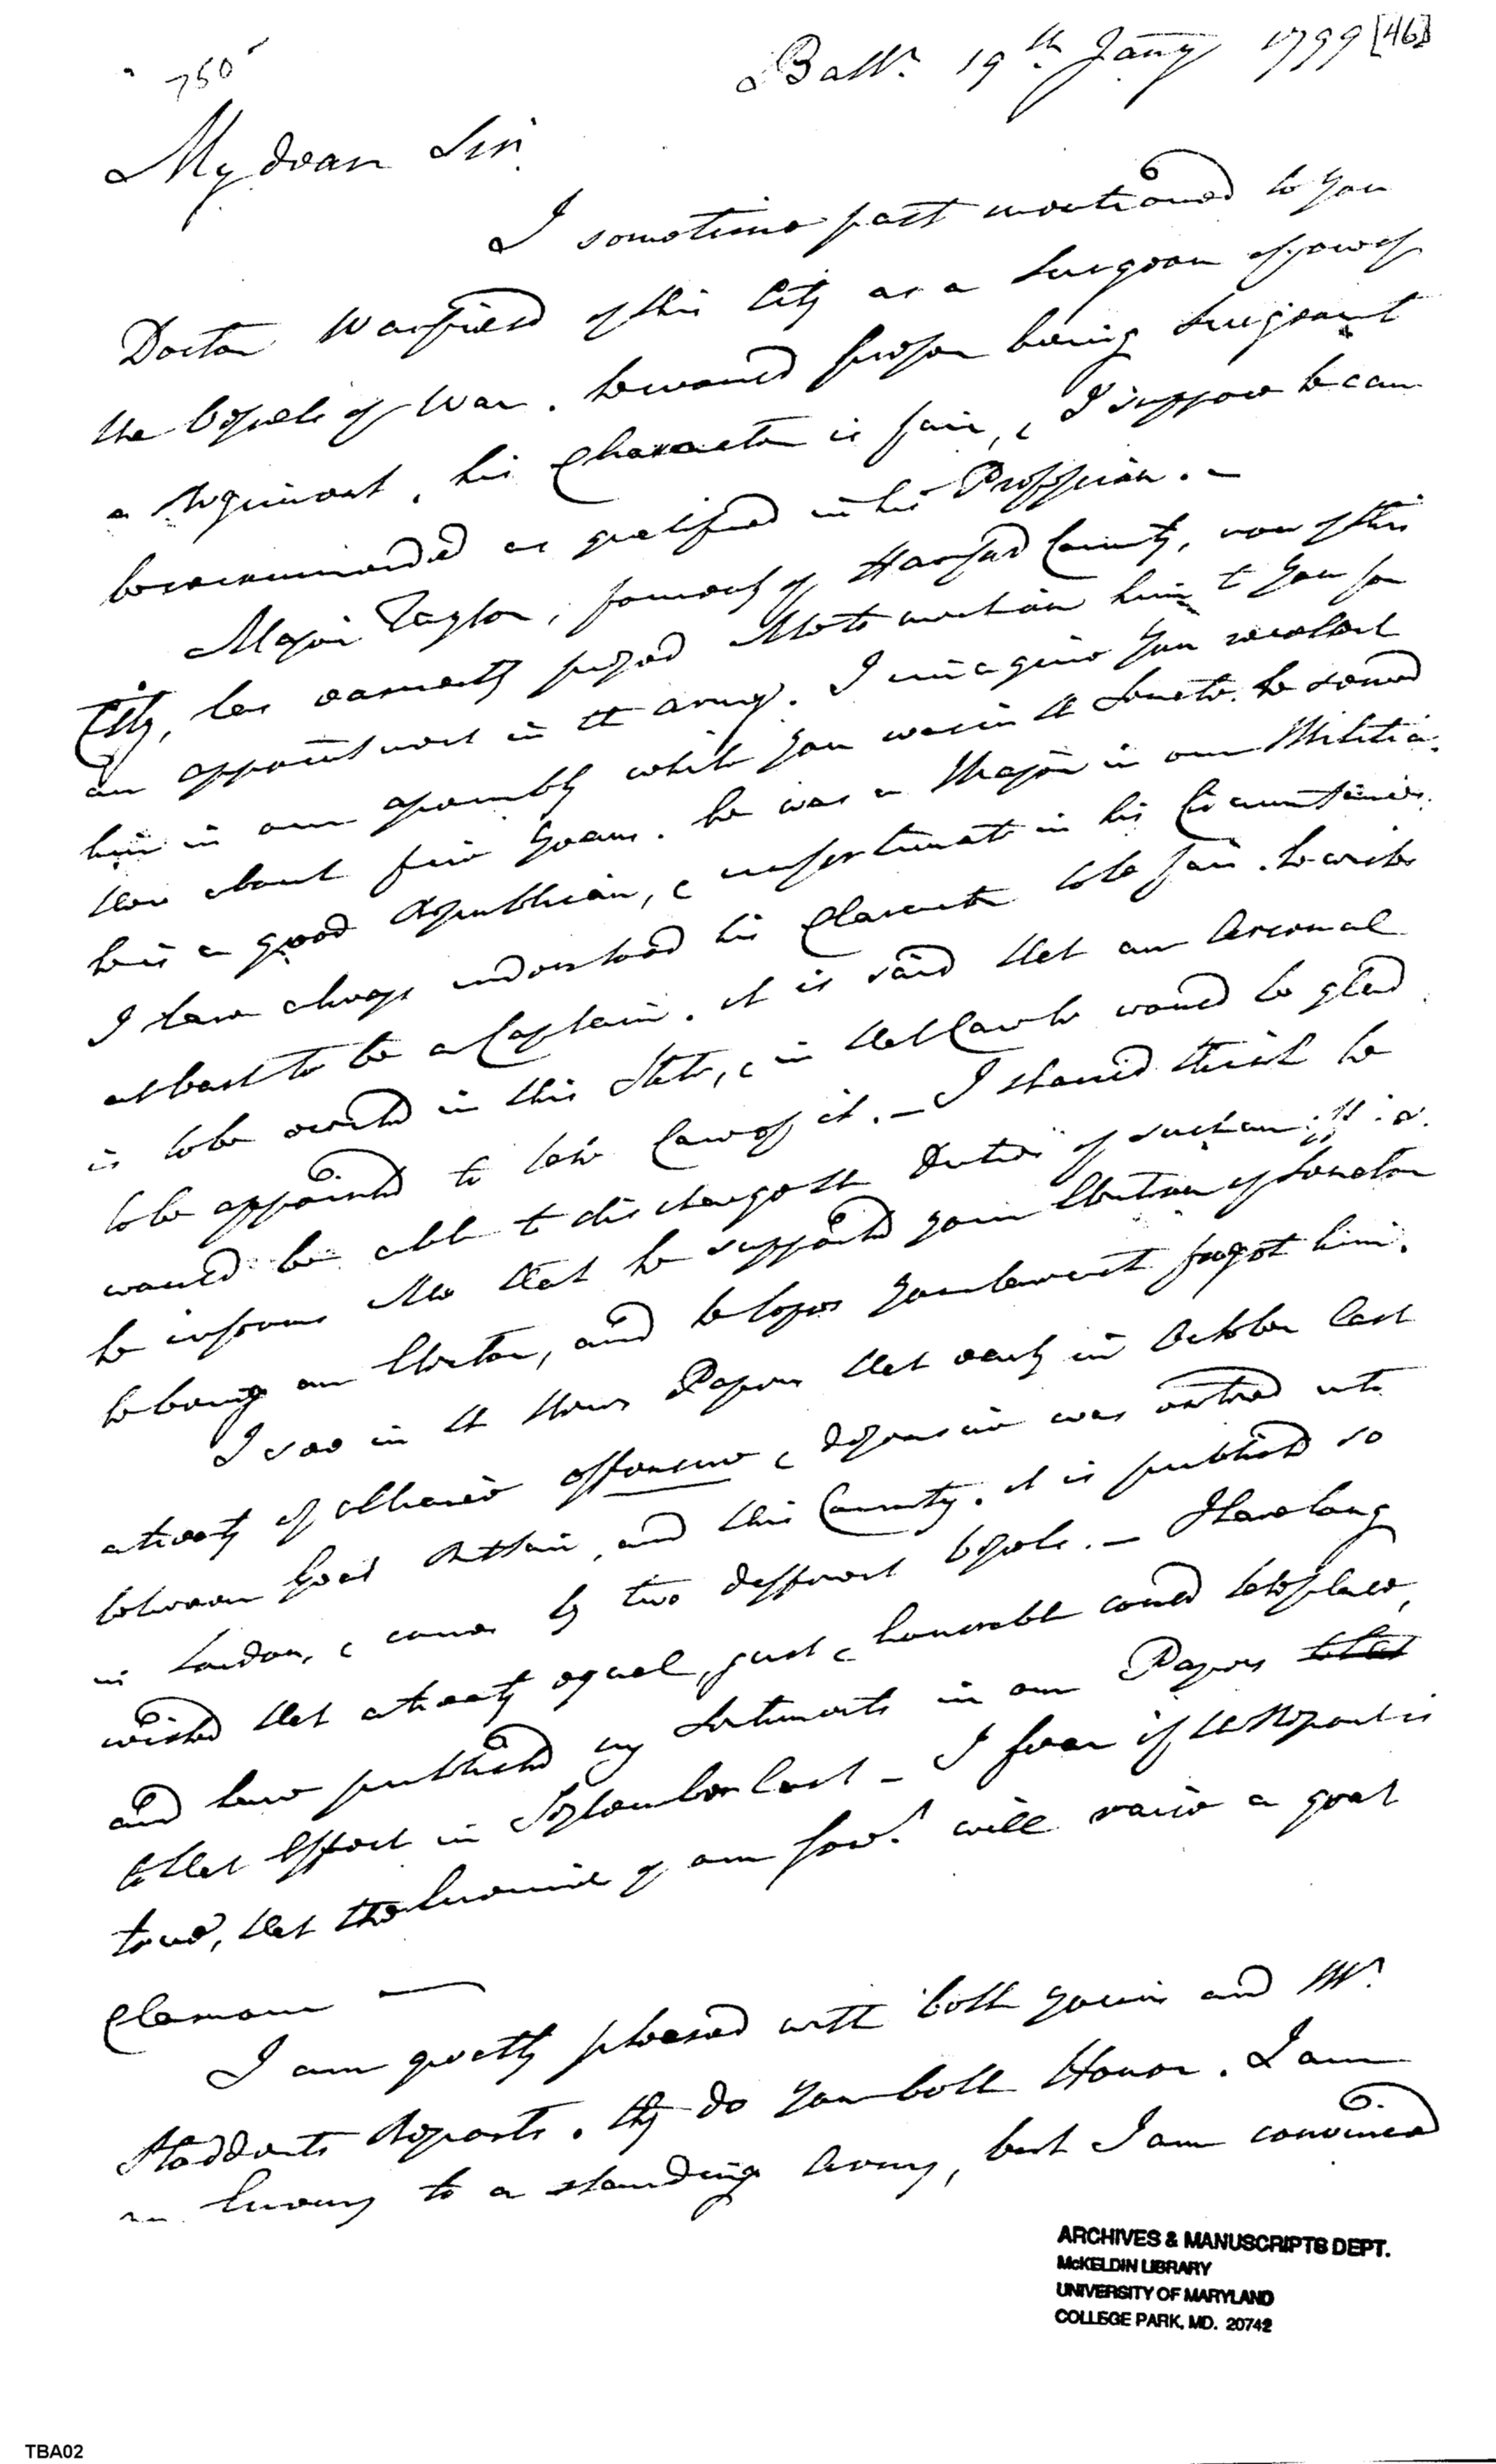 750
Balt.r 19th Jan'y 1799 [46]
My dear Sir
I sometime past mentioned to you
Doctor Warfield of this City as a Surgeon of one of
the Vessels of War. he would prefer being Surgeon to
a Regiment, his Character is fair, & I suppose he can
be recommended as qualified in his Profession. —
Major Taylor, formerly of Harford County, now of this
City, has earnestly pressed Me to mention him to you for
an appointment in the army. I imagine you recollect
him in our assembly while you was in the Senate. he served
there about five years. he was a Major in our Militia.
he is a good Republican, & unfortunate in his Circumstances.
I have always understood his Character to be fair. he wishes
at least to be a Captain. it is said that an Arsenal
is to be erected in this State, & in that Case he would be glad
to be appointed to take Care of it. — I should think he
would be able to discharge the Duties of such an
he informs Me that he supported your Election of Senator
he being an Elector, and he hopes you have not forgot him.
I see in the News Papers that early in October last
a treaty of alliance offensive & defensive was entred into
between Great Brittain, and this Country. it is published so
in London, & comes by two different Vessels. — I have long
wished that a treaty equal, just & honorable could take place,
and have published my sentiments in our Papers
to that Effect in September last — I fear if the Report is
true, that the Enemies of our Gov.t will raise a great
Clamour —
I am greatly pleased with both yours and Mr.
Stodderts Reports. they do you both Honor. I am
an Enemy to a standing Army, but I am convinced
ARCHIVES & MANUSCRIPTS DEPT.
McKELDIN LIBRARY
UNIVERSITY OF MARYLAND
COLLEGE PARK, MD. 20742
TBA02